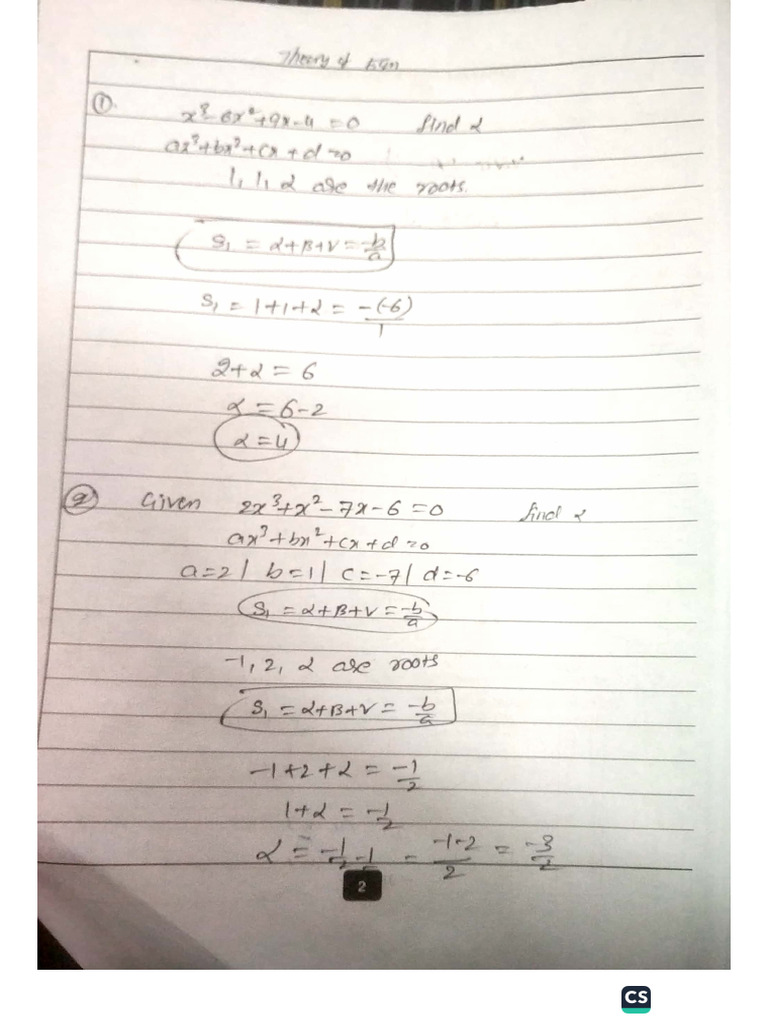 Theory of Eqn
① x³-6x²+9x-4=0 find α
ax³+bx²+cx+d=0
1, 1, α are the roots.
S₁ = α+β+γ = -b/a
S₁ = 1+1+α = -(-6)/1
2+α = 6
α = 6-2
α = 4
② Given 2x³+x²-7x-6=0 find α
ax³+bx²+cx+d=0
a=2 | b=1 | c=-7 | d=-6
S₁ = α+β+γ = -b/a
-1, 2, α are roots
S₁ = α+β+γ = -b/a
-1+2+α = -1/2
1+α = -1/2
α = -1/2-1 = -1-2/2 = -3/2
2
CS